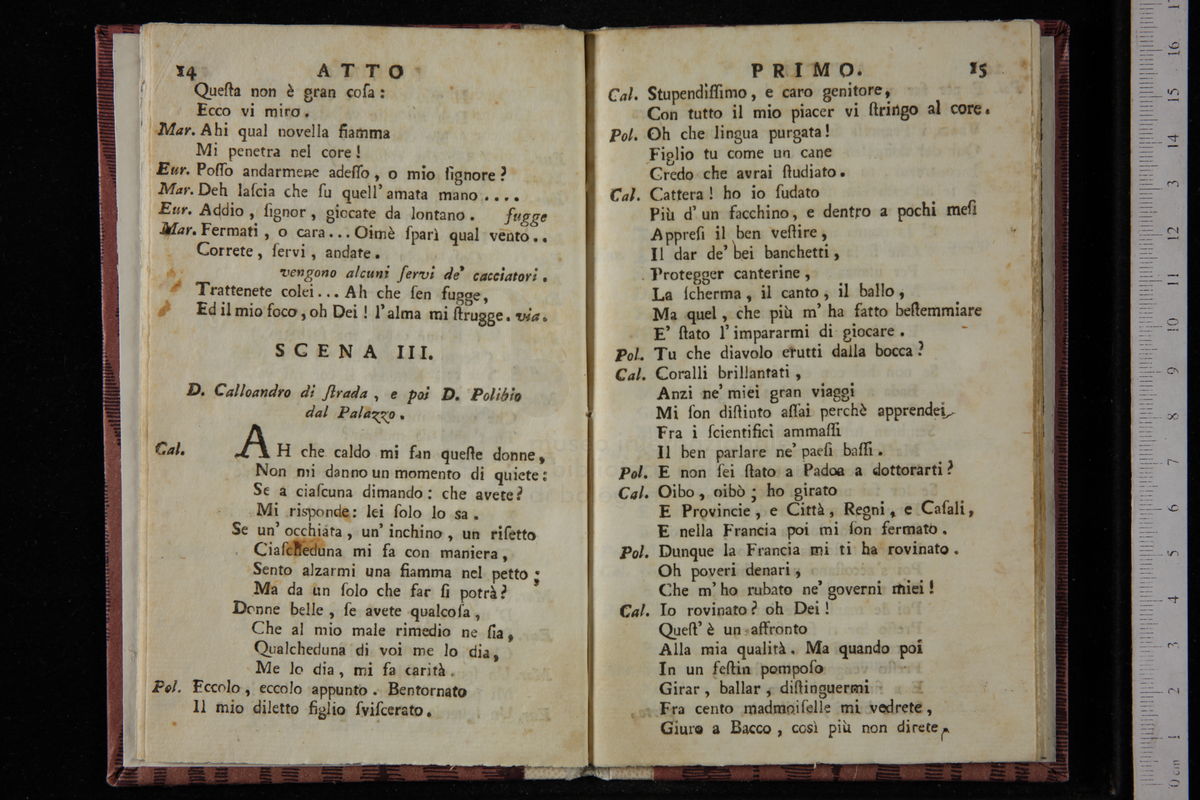 14 ATTO
Queſta non è gran coſa:
Ecco vi miro.
Mar. Ahi qual novella fiamma
Mi penetra nel core!
Eur. Poſſo andarmene adeſſo, o mio ſignore?
Mar. Deh laſcia che ſu quell' amata mano ....
Eur. Addio, ſignor, giocate da lontano. fugge
Mar. Fermati, o cara... Oimè ſparì qual vento..
Correte, ſervi, andate.
vengono alcuni ſervi de' cacciatori.
Trattenete colei... Ah che ſen fugge,
Ed il mio foco, oh Dei! l'alma mi ſtrugge. via.
SCENA III.
D. Calloandro di ſtrada, e poi D. Polibio
dal Palazzo.
Cal. AH che caldo mi fan queſte donne,
Non mi danno un momento di quiete:
Se a ciaſcuna dimando: che avete?
Mi riſponde: lei ſolo lo sa.
Se un' occhiata, un' inchino, un riſetto
Ciaſcheduna mi fa con maniera,
Sento alzarmi una fiamma nel petto;
Ma da un ſolo che far ſi potrà?
Donne belle, ſe avete qualcoſa,
Che al mio male rimedio ne ſia,
Qualcheduna di voi me lo dia,
Me lo dia, mi fa carità.
Pol. Eccolo, eccolo appunto. Bentornato
Il mio diletto figlio ſviſcerato.
PRIMO. 15
Cal. Stupendiſſimo, e caro genitore,
Con tutto il mio piacer vi ſtringo al core.
Pol. Oh che lingua purgata!
Figlio tu come un cane
Credo che avrai ſtudiato.
Cal. Cattera! ho io ſudato
Più d' un facchino, e dentro a pochi meſi
Appreſi il ben veſtire,
Il dar de' bei banchetti,
Protegger canterine,
La ſcherma, il canto, il ballo,
Ma quel, che più m' ha fatto beſtemmiare
E' ſtato l' impararmi di giocare.
Pol. Tu che diavolo erutti dalla bocca?
Cal. Coralli brillantati,
Anzi ne' miei gran viaggi
Mi ſon diſtinto aſſai perchè apprendei,
Fra i ſcientifici ammaſſi
Il ben parlare ne' paeſi baſſi.
Pol. E non ſei ſtato a Padoa a dottorarti?
Cal. Oibo, oibò; ho girato
E Provincie, e Città, Regni, e Caſali,
E nella Francia poi mi ſon fermato.
Pol. Dunque la Francia mi ti ha rovinato.
Oh poveri denari,
Che m' ho rubato ne' governi miei!
Cal. Io rovinato? oh Dei!
Queſt' è un affronto
Alla mia qualità. Ma quando poi
In un feſtin pompoſo
Girar, ballar, diſtinguermi
Fra cento madmoiſelle mi vedrete,
Giuro a Bacco, così più non direte,